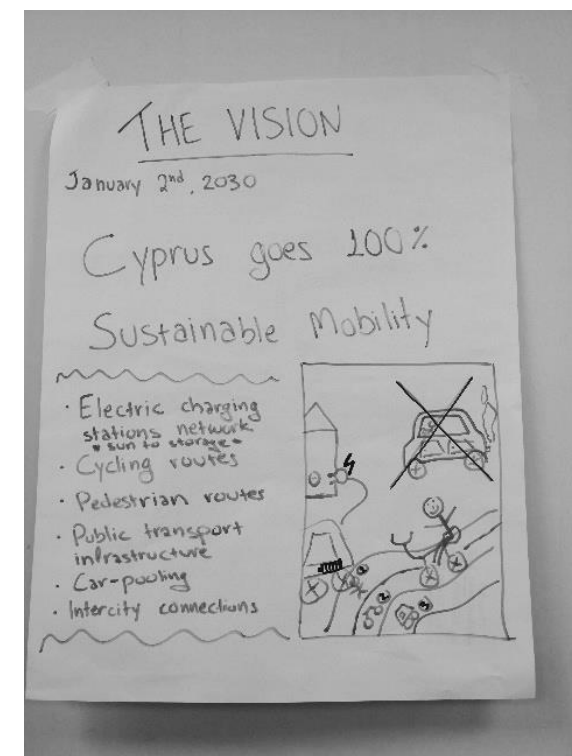 THE VISION
January 2nd, 2030
Cyprus goes 100%
Sustainable Mobility
· Electric charging
stations network
* sun to storage *
· Cycling routes
· Pedestrian routes
· Public transport
infrastructure
· Car-pooling
· Intercity connections